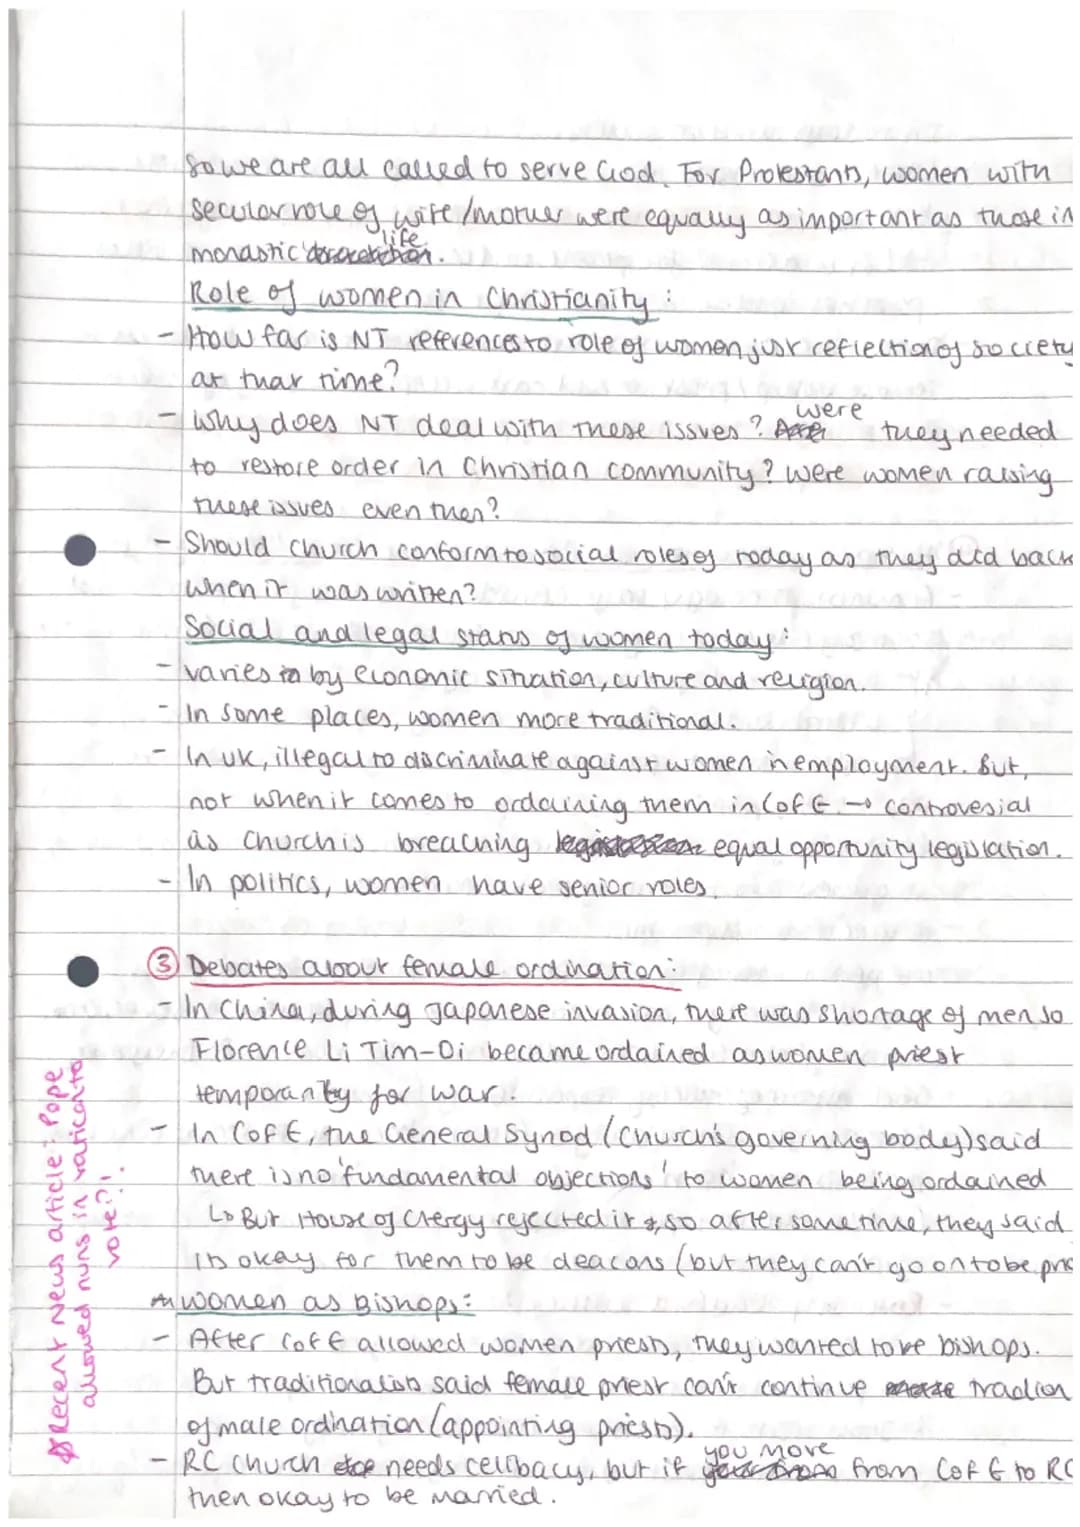 So we are all called to serve God. For Protestants, women with
secular role of wife/mother were equally as important as those in
monastic life.
Role of women in Christianity:
- How far is NT references to role of women just reflection of society
at that time?
- Why does NT deal with these issues? were they needed
to restore order in Christian community? Were women raising
these issues even then?
- Should church conform to social roles of today as they did back
when it was written?
Social and legal status of women today:
- varies by economic situation, culture and religion.
- In some places, women more traditional.
- In UK, illegal to discriminate against women in employment. But,
not when it comes to ordaining them in CofE → controvesial
as Church is breaching equal opportunity legislation.
- In politics, women have senior roles.
③ Debates about female ordination:
- In China, during Japanese invasion, there was shortage of men so
Florence Li Tim-Oi became ordained as women priest
temporarily for war.
- In CofE, the General Synod (Church's governing body) said
there is no 'fundamental objections' to women being ordained
↳ But House of Clergy rejected it & so after some time, they said
its okay for them to be deacons (but they can't go on to be
women as Bishops:
- After CofE allowed women priests, they wanted to be bishops.
But traditionalists said female priest can't continue tradion
of male ordination (appointing priests).
- RC church needs celibacy, but if you move from CofE to RC
then okay to be married.
Recent News article: Pope
allowed nuns in vatican to
vote?!.